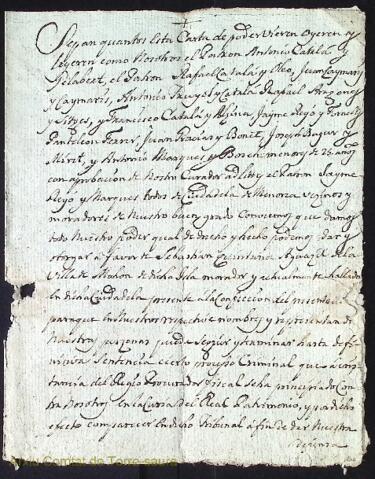 Sepan quantos Esta Carta de poder Vieren oyeren y
Leyeren como Nosotros el Patron Antonio Catalá y
Gelabert, el Patron Rafael Catalá y Oleo, Juan Caymaris
y Caymaris, Antonio Truyol y Catalá Rafael
y y Francisco Catalá y Alzina, Jayme Rejo y
Pantaleon Ferrer, Juan y Bonet, Joseph Baguer y
Miret, y Antonio Marques y menores de 25 años
con aprobacion de Nostro Curador ad litem el Patron Jayme
Rejo y Marques todos de Ciudadela de Menorca vezinos y
moradores de Nuestro buen grado Conocemos que damos
todo Nuestro poder qual de drecho y hecho podemos dar y
otorgar á favor de Sebastian Quintana de la
Villa de Mahon de dicha Isla morador y actualmente hallado
En dicha Ciudadela presente al Confeccion del
para que En Nuestros nombres y representan de
Nuestras personas pueda seguir y terminar hasta de fi-
nitiva Sentencia cierto proceso Criminal que a ins-
tancia del Regio Procurador fiscal se ha principiado Con
tra Nosotros En la Curia del Real Patrimonio, y para dicho
efecto comparecer En dicho tribunal á fin de dar Nuestra
defensa
Comtat de Torre-saura